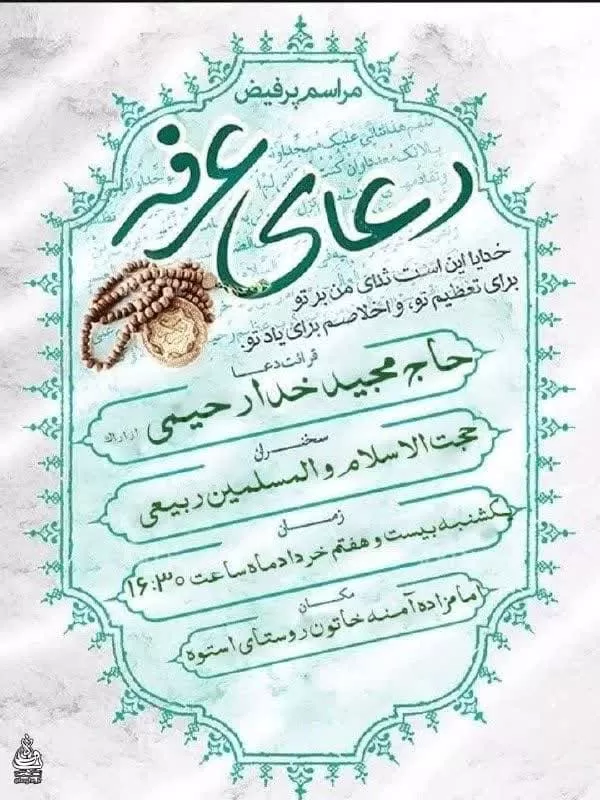 مراسم پرفیض
دعای عرفه
خدایا این است ثنای من بر تو
برای تعظیم تو، و اخلاصم برای یاد تو.
قرائت دعا
حاج مجید خدارحیمی از اراک
سخنران
حجت الاسلام والمسلمین ربیعی
زمان
یکشنبه بیست و هفتم خرداد ماه ساعت ۱۶:۳۰
مکان
امامزاده آمنه خاتون روستای استوه